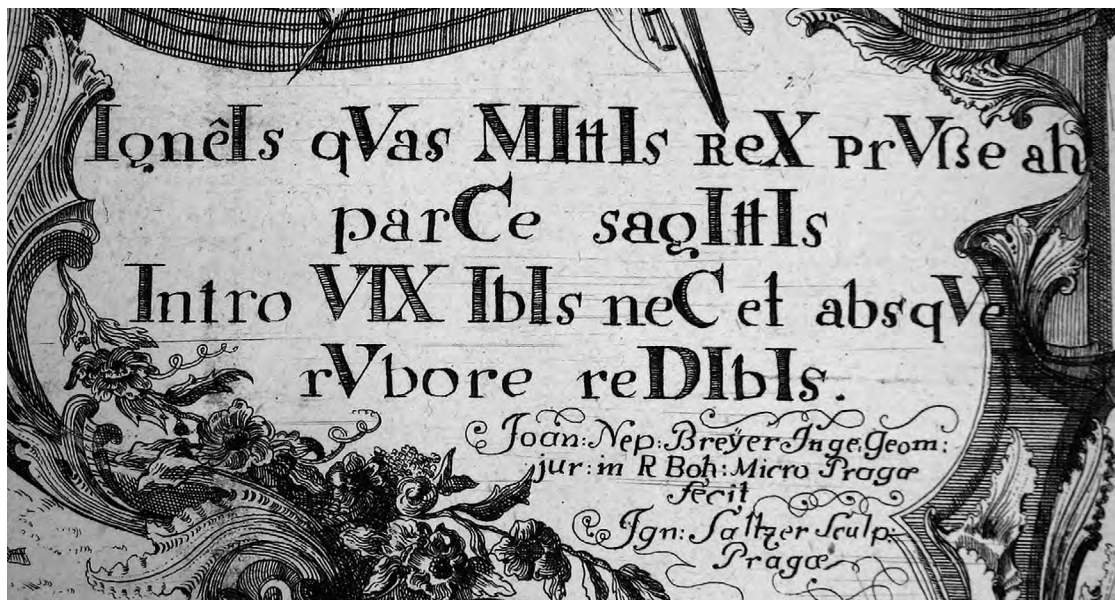 IgnêIs qVas MIttIs ReX PrVße ah
parCe sagIttIs
Intro VIX IbIs neC et absqVe
rVbore reDIbIs.
Joan: Nep: Breÿer Inge: Geom:
jur: in R Boh: Micro Pragæ
fecit
Ign: Saltzer Sculp:
Pragæ